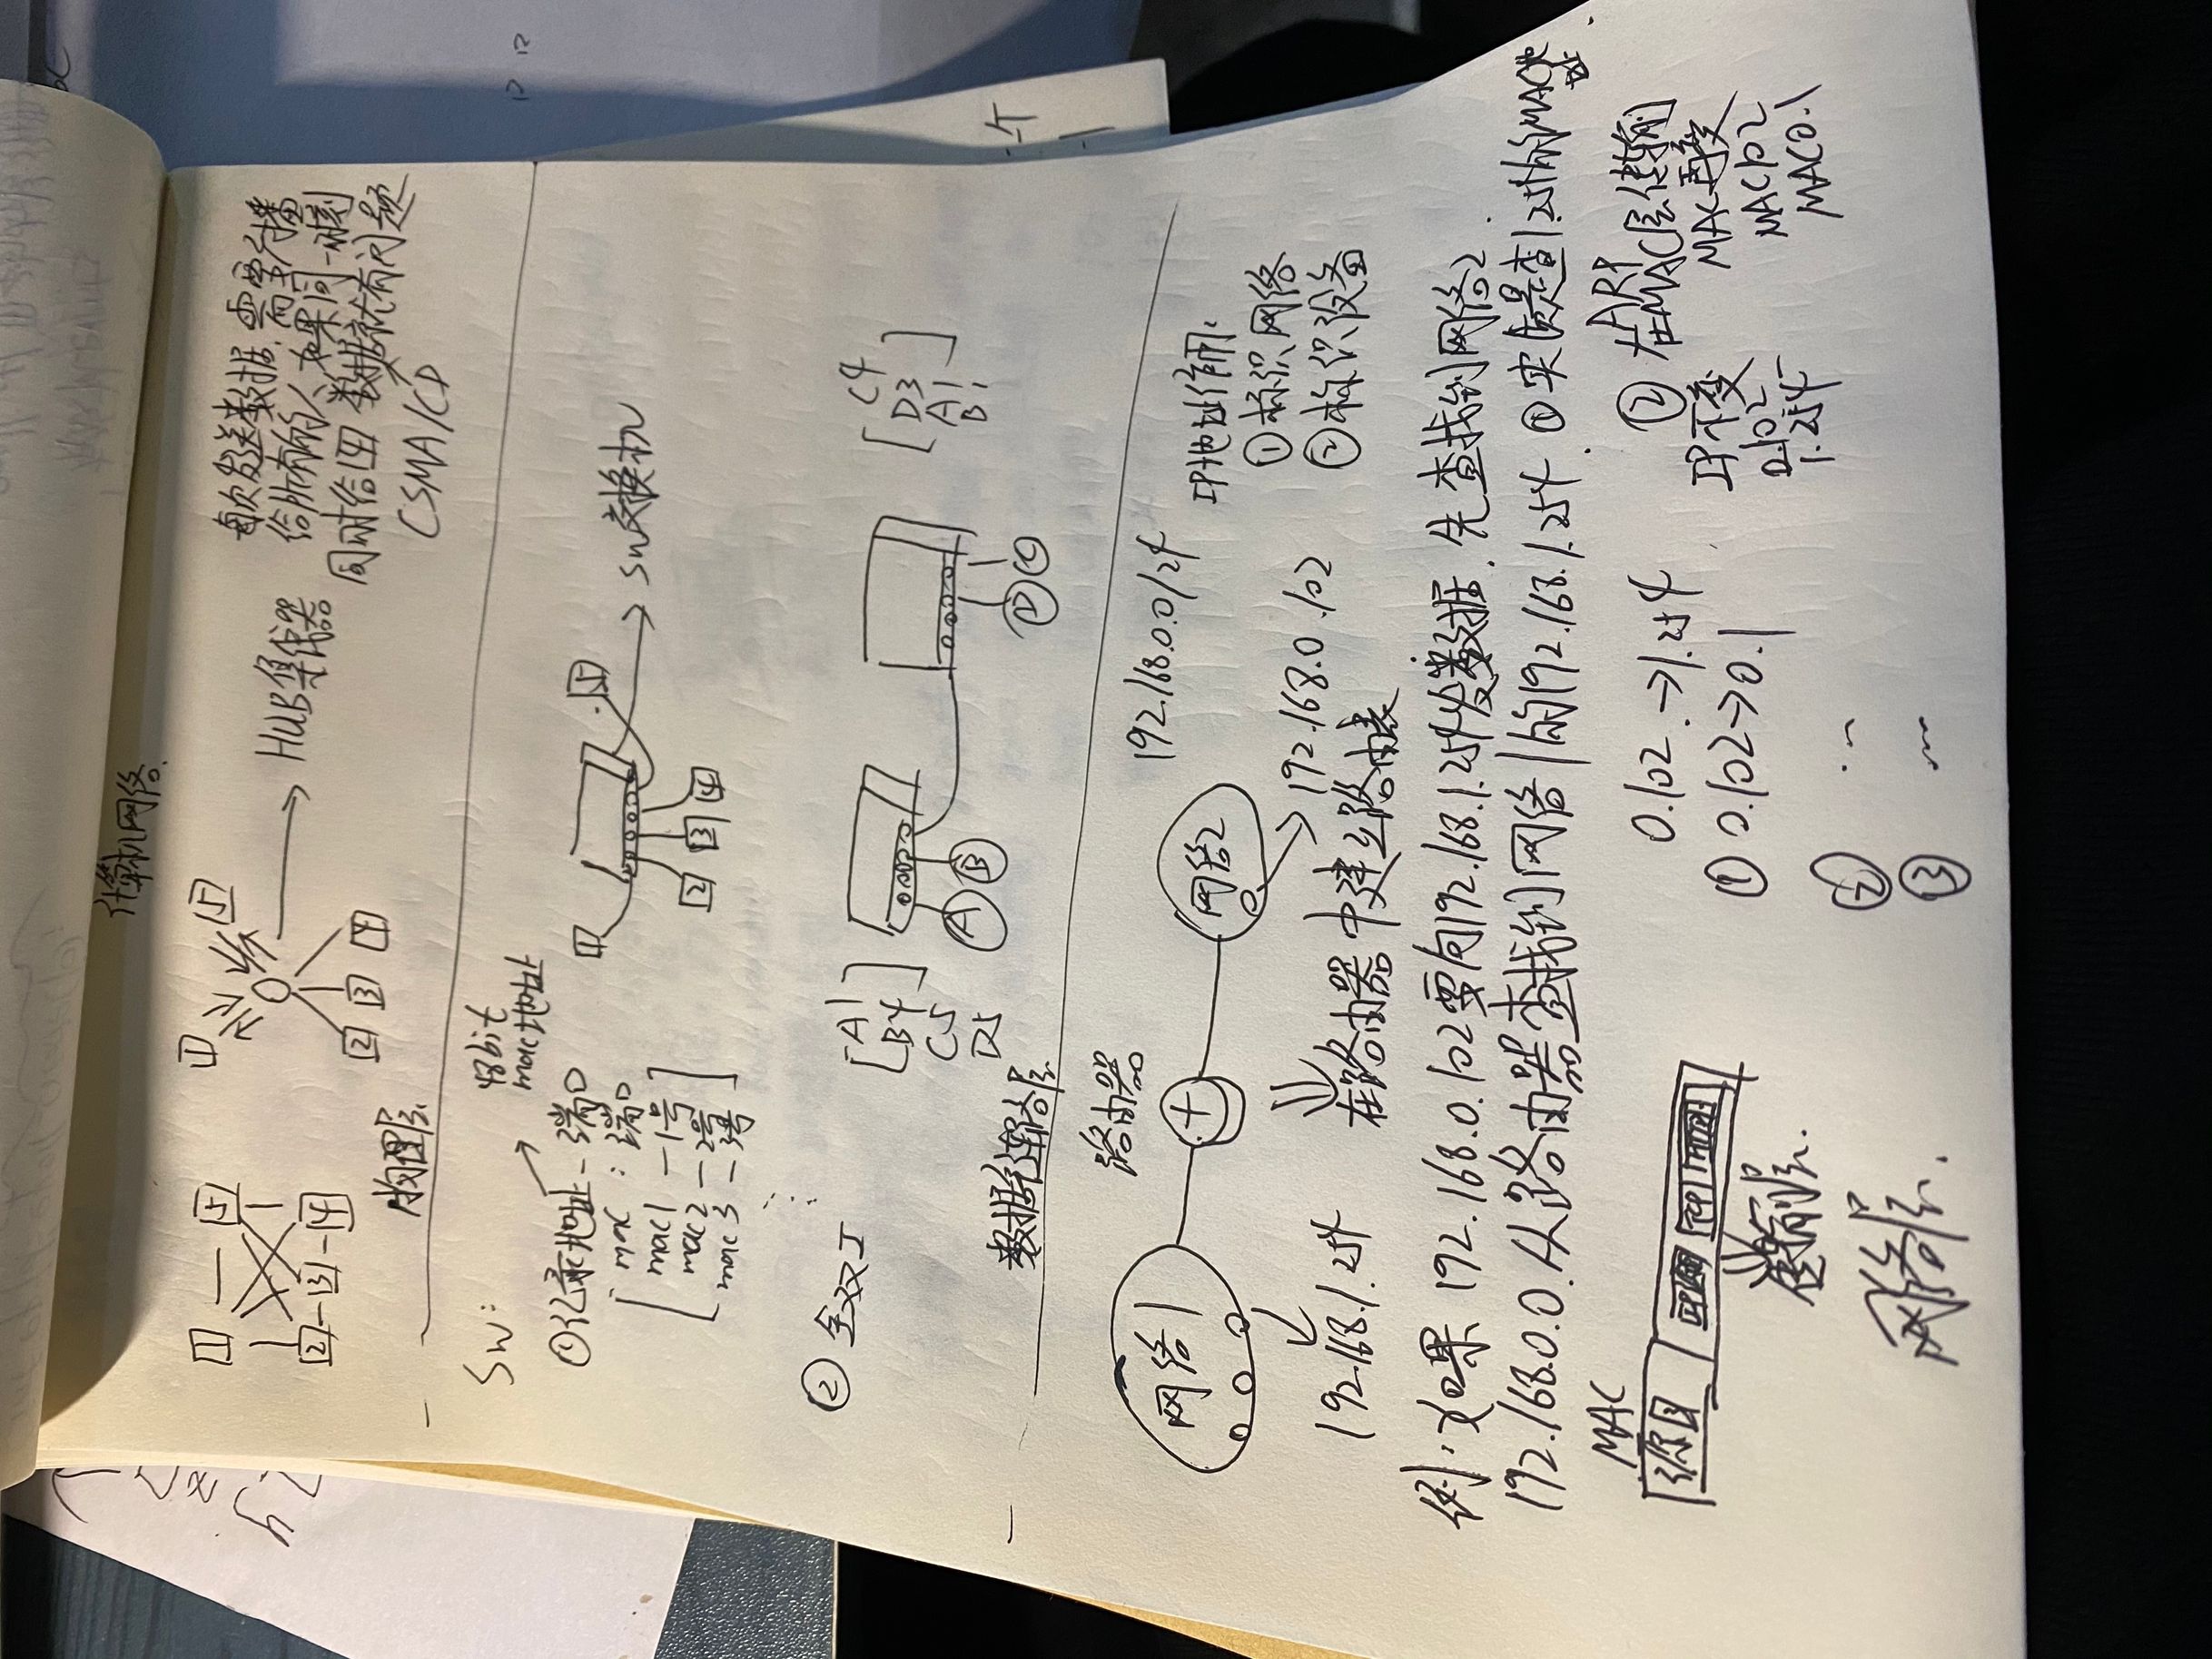 计算机网络
1 5
2 3 4
1 5
2 3 4
HUB集线器
每次发送数据,需要广播
给所有的人,如果同一时刻
同时给4 数据就有问题
CSMA/CD
物理层
SW:
48bit
mac地址
①记录地址-端口
mac : 端口
mac1 - 1号
mac2 - 2号
mac3 - 3号
1 5
2 3 4
SW交换机
② 全双工
A1
B4
C5
D5
A B
D C
C4
D3
A1
B1
数据链路层
路由器
网络1
网络2
192.168.0.0/24
192.168.1.254
192.168.0.102
在路由器中建立路由表
IP地址作用:
①标识网络
②标识设备
例:如果 192.168.0.102要向192.168.1.254发数据,先查找到网络2
192.168.0.0.从路由器查找到网络1的192.168.1.254. ①实质是查1.254的MAC地址
MAC
源目
IP TCP
传输层.
网络层.
0.102 → 1.254
① 0.102→0.1
②
③
ARP
② 在MAC层传输
IP不变
0.102
1.254
MAC再变
MAC102
MAC0.1